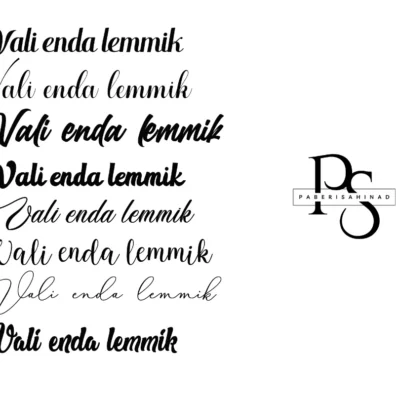 Vali enda lemmik
Vali enda lemmik
Vali enda lemmik
Vali enda lemmik
Vali enda lemmik
Vali enda lemmik
Vali enda lemmik
Vali enda lemmik
PS
PABERISAHINAD